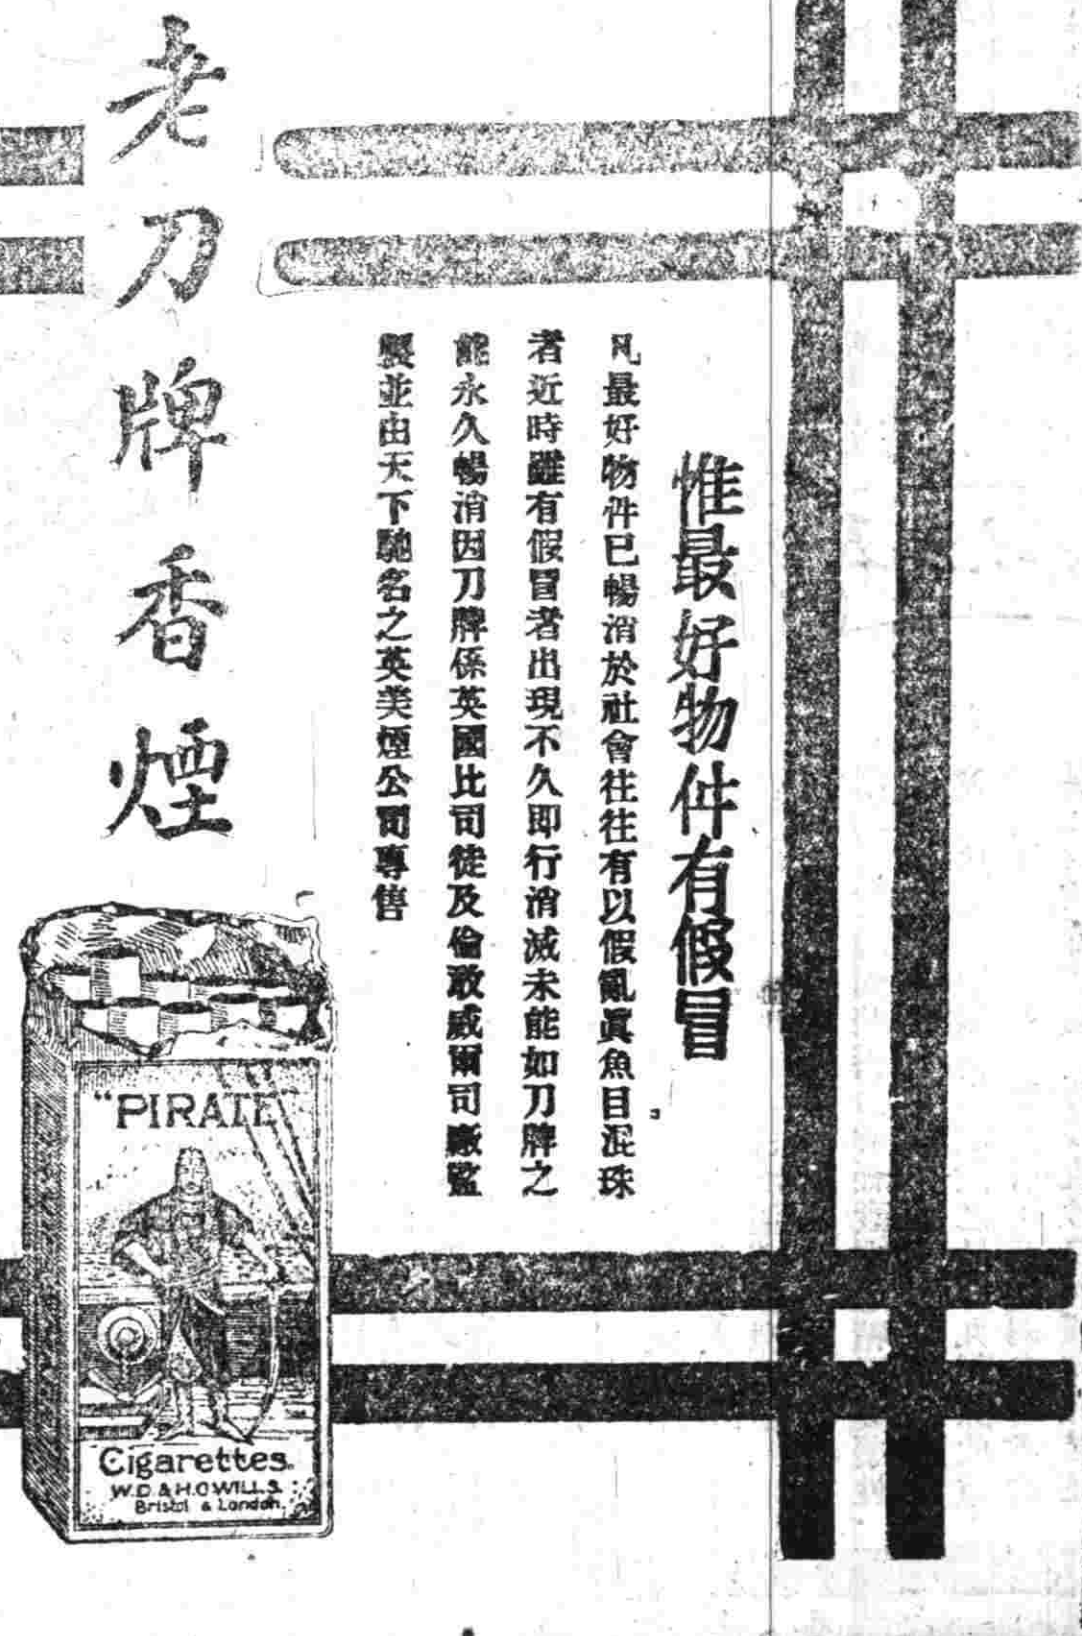 惟最好物件有假冒
凡最好物件已暢消於社會往往有以假亂眞魚目混珠
者近時雖有假冒者出現不久即行消滅未能如刀牌之
能永久暢消因刀牌係英國比司徒及倫敦威爾司廠監
製並由天下馳名之英美煙公司專售
老刀牌香煙
"PIRATE"
Cigarettes.
W.D.&H.O.WILLS.
Bristol & London.